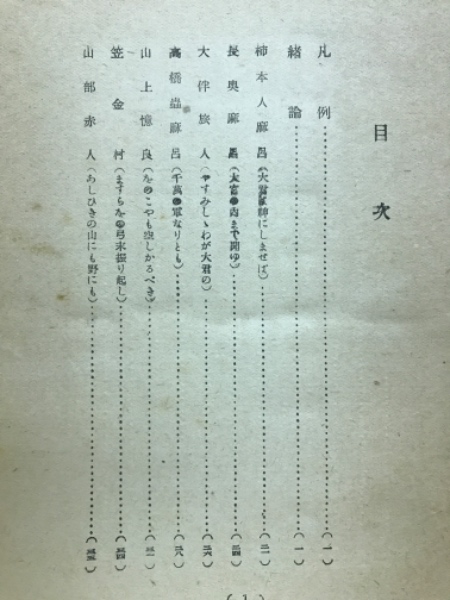 目次
凡例……(一)
緒論……(一)
柿本人麻呂(大君は神にしませば)……(二一)
長奥麻呂(大宮の内まで聞ゆ)……(二四)
大伴旅人(やすみしゝわが大君の)……(二六)
高橋蟲麻呂(千萬の軍なりとも)……(二八)
山上憶良(をのこやも空しかるべき)……(三一)
笠金村(ますらをの弓末振り起し)……(三四)
山部赤人(あしひきの山にも野にも)……
( 1 )